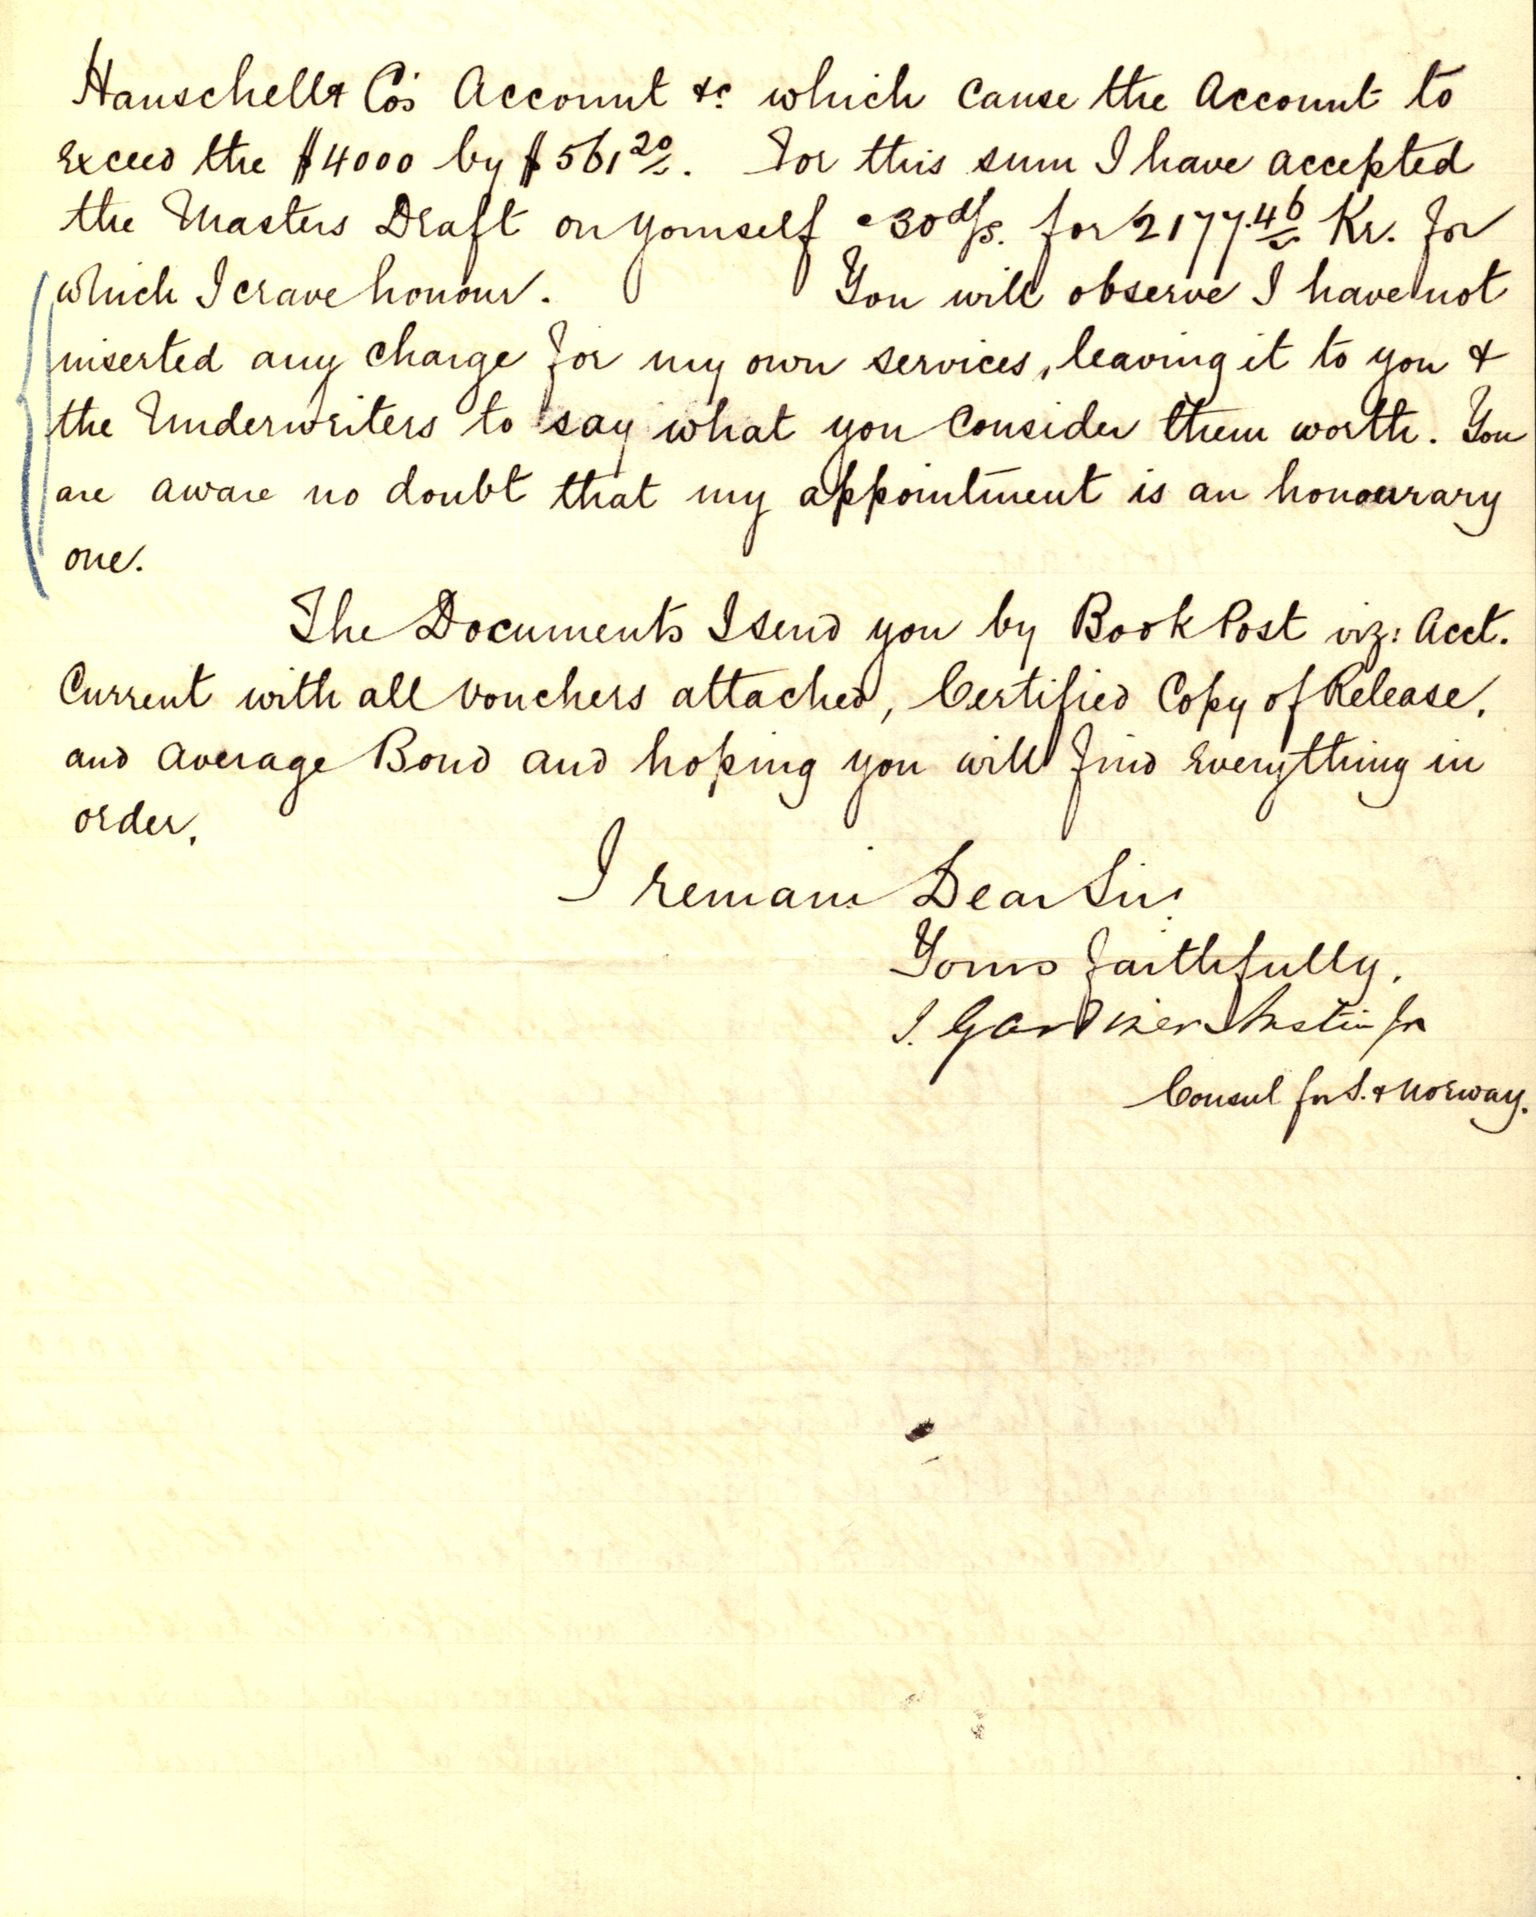 Hanschell & Co's Account &c which cause the Account to
exceed the $4000 by $561 20. For this sum I have accepted
the Masters Draft on yourself @ 30 d/s. for 2177.46 Kr. for
which I crave honour. You will observe I have not
inserted any charge for my own services, leaving it to you &
the Underwriters to say what you consider them worth. You
are aware no doubt that my appointment is an honourary
one.
The Documents I send you by Book Post viz: Acct.
Current with all vouchers attached, Certified Copy of Release,
and Average Bond and hoping you will find everything in
order,
I remain Dear Sir
Yours faithfully,
J. Gardiner Austin Jr
Consul for S. & Norway.